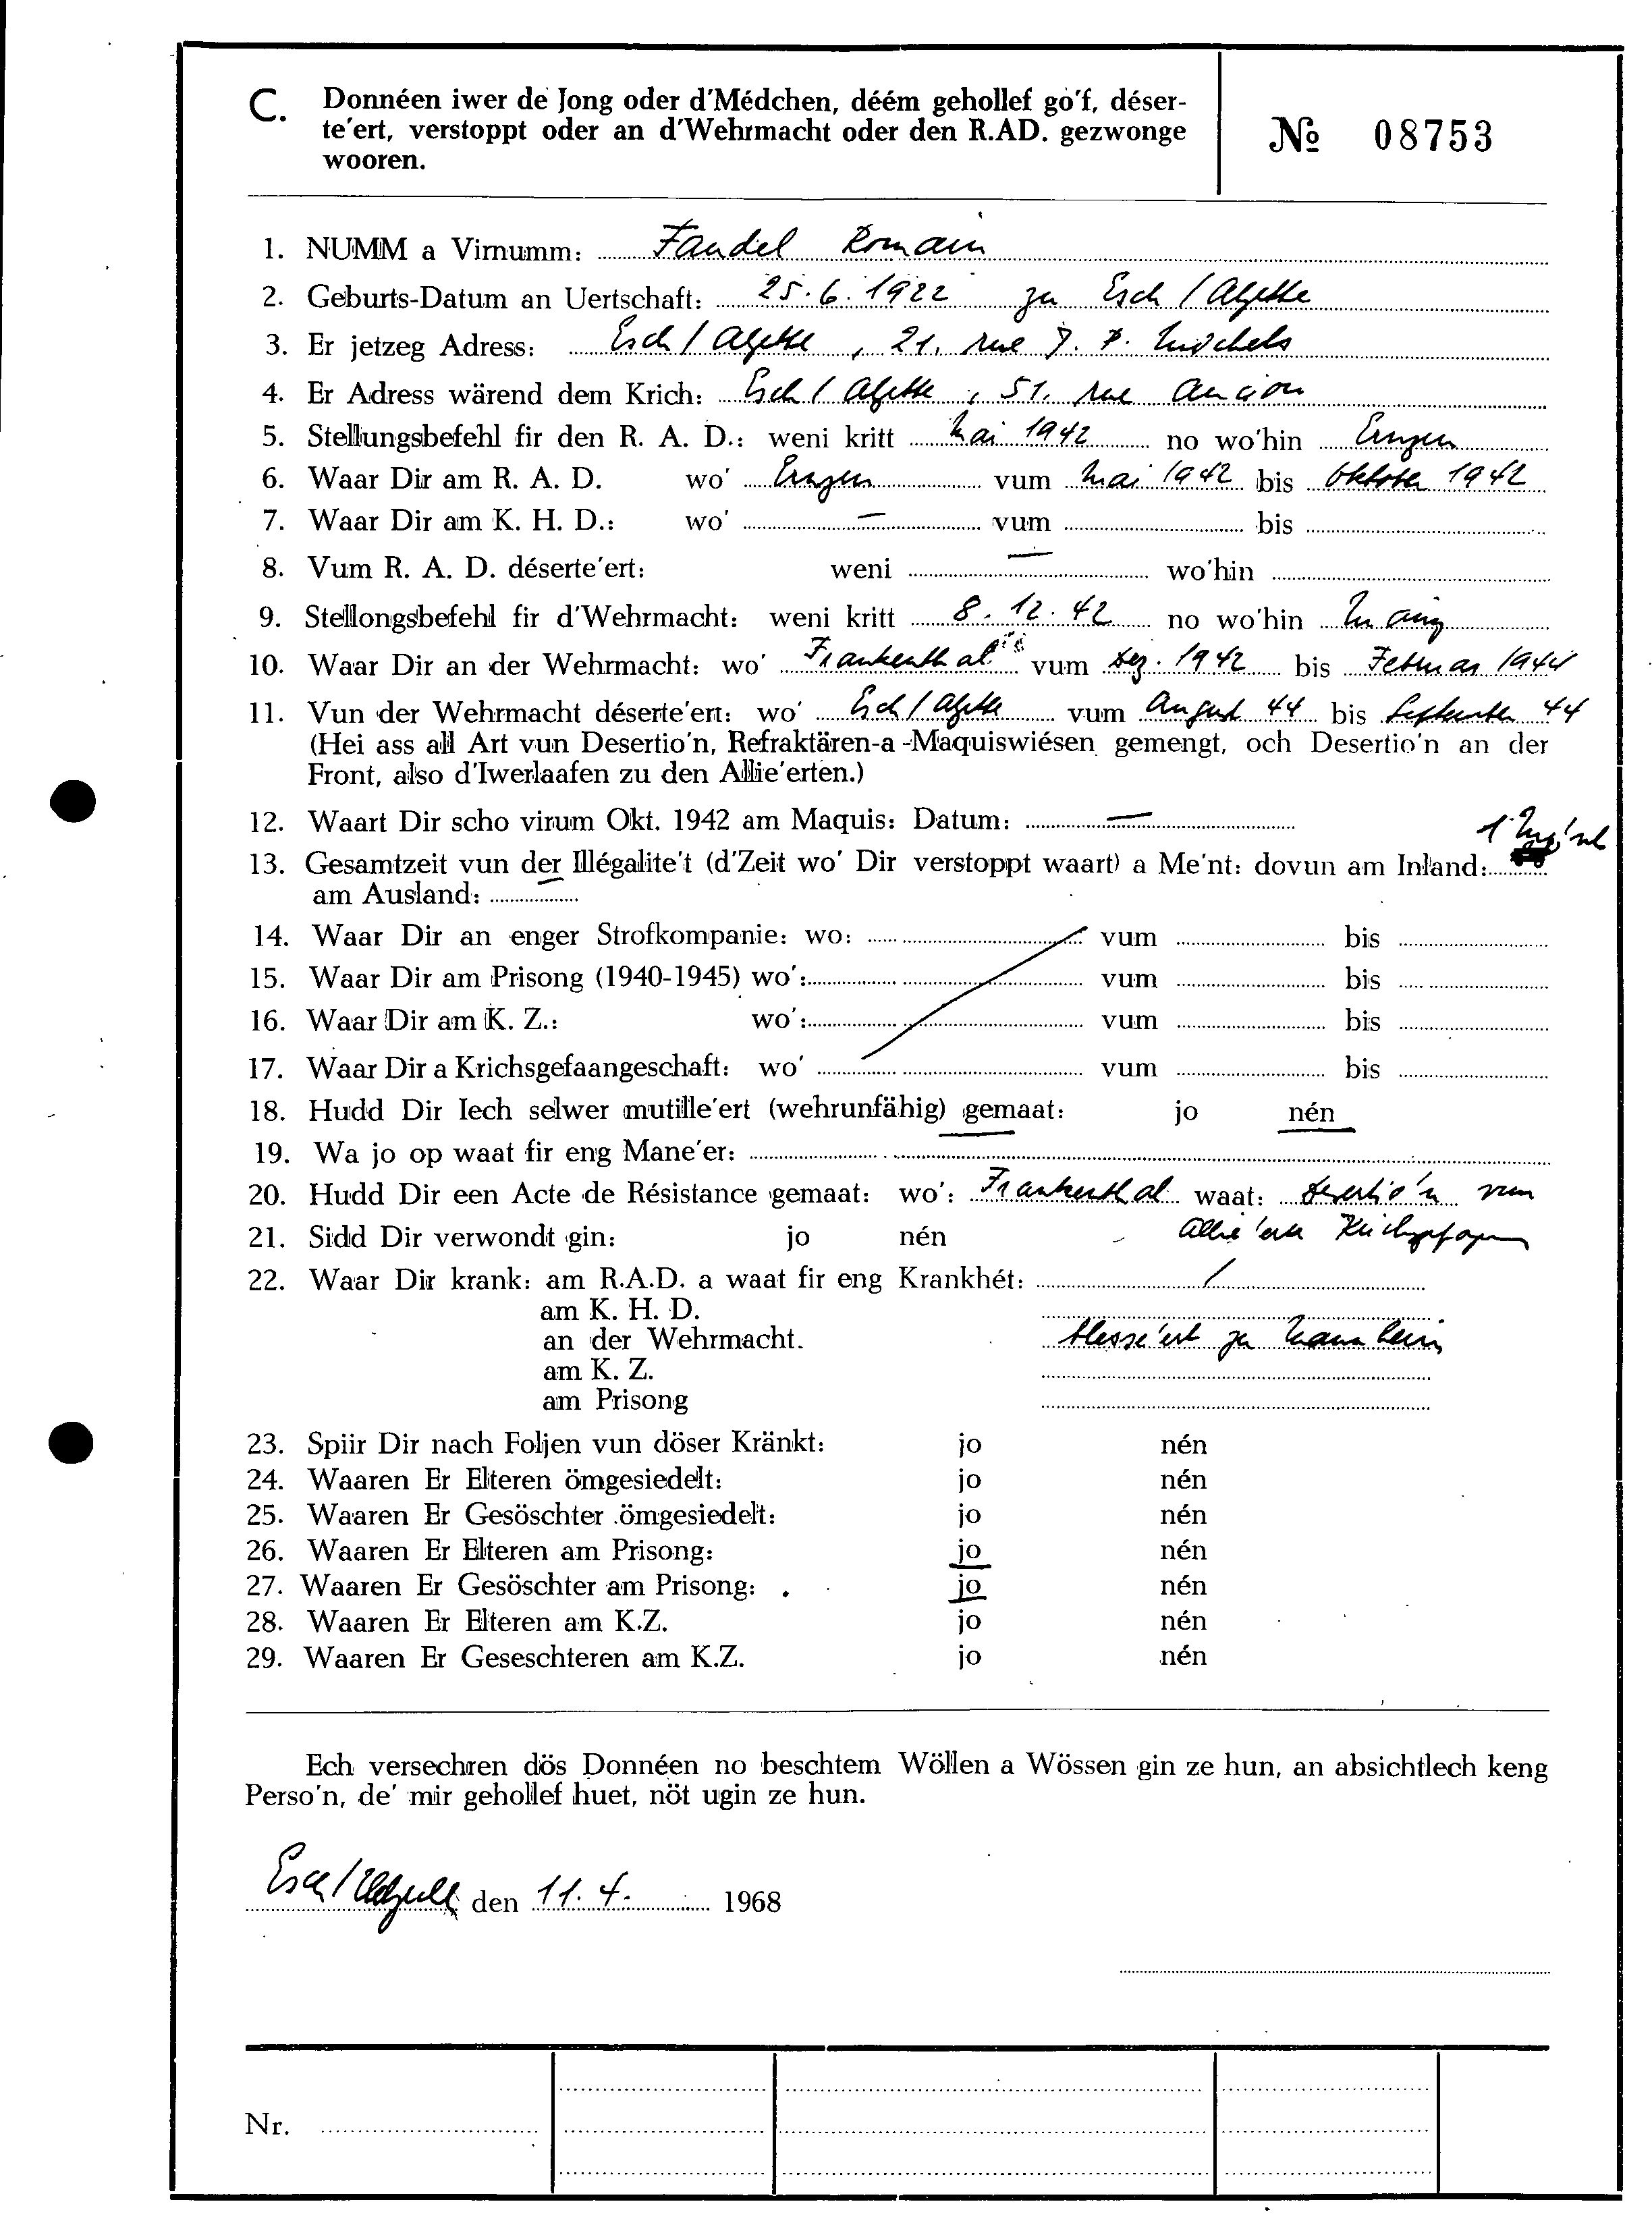 C. Donnéen iwer de Jong oder d'Médchen, déém gehollef go'f, déser-
te'ert, verstoppt oder an d'Wehrmacht oder den R.AD. gezwonge
wooren.
№ 08753
1. NUMM a Virnumm: Fandel Romain
2. Geburts-Datum an Uertschaft: 25.6.1922 zu Esch / Alzette
3. Er jetzeg Adress: Esch / Alzette, 21, rue J. P. Michels
4. Er Adress wärend dem Krich: Esch / Alzette, 51, rue
5. Stellungsbefehl fir den R. A. D.: weni kritt Mai 1942 no wo'hin
6. Waar Dir am R. A. D. wo' vum Mai 1942 bis Oktober 1942
7. Waar Dir am K. H. D.: wo' — vum bis
8. Vum R. A. D. déserte'ert: weni — wo'hin
9. Stellongsbefehl fir d'Wehrmacht: weni kritt 8.12.42 no wo'hin
10. Waar Dir an der Wehrmacht: wo' Frankenthal vum Dez. 1942 bis Februar 1944
11. Vun der Wehrmacht déserte'ert: wo' Esch / Alzette vum August 44 bis September 44
(Hei ass all Art vun Desertio'n, Refraktären-a-Maquiswiésen gemengt, och Desertio'n an der
Front, also d'Iwerlaafen zu den Allie'erten.)
12. Waart Dir scho virum Okt. 1942 am Maquis: Datum: —
13. Gesamtzeit vun der Illégalite't (d'Zeit wo' Dir verstoppt waart) a Me'nt: dovun am Inland: 1
am Ausland: —
14. Waar Dir an enger Strofkompanie: wo: vum bis
15. Waar Dir am Prisong (1940-1945) wo': vum bis
16. Waar Dir am K. Z.: wo': vum bis
17. Waar Dir a Krichsgefaangeschaft: wo' vum bis
18. Hudd Dir Iech selwer mutille'ert (wehrunfähig) gemaat: jo nén
19. Wa jo op waat fir eng Mane'er:
20. Hudd Dir een Acte de Résistance gemaat: wo': Frankenthal waat: Desertio'n vun
21. Sidd Dir verwondt gin: jo nén Allie'erte
22. Waar Dir krank: am R.A.D. a waat fir eng Krankhét: /
am K. H. D.
an der Wehrmacht. blesse'ert zu Mannheim
am K. Z.
am Prisong
23. Spiir Dir nach Foljen vun döser Kränkt: jo nén
24. Waaren Er Elteren ömgesiedelt: jo nén
25. Waaren Er Gesöschter ömgesiedelt: jo nén
26. Waaren Er Elteren am Prisong: jo nén
27. Waaren Er Gesöschter am Prisong: jo nén
28. Waaren Er Elteren am K.Z. jo nén
29. Waaren Er Geseschteren am K.Z. jo nén
Ech versechren dös Donnéen no beschtem Wöllen a Wössen gin ze hun, an absichtlech keng
Perso'n, de' mir gehollef huet, nöt ugin ze hun.
Esch / Alzette den 11.4. 1968
Nr.